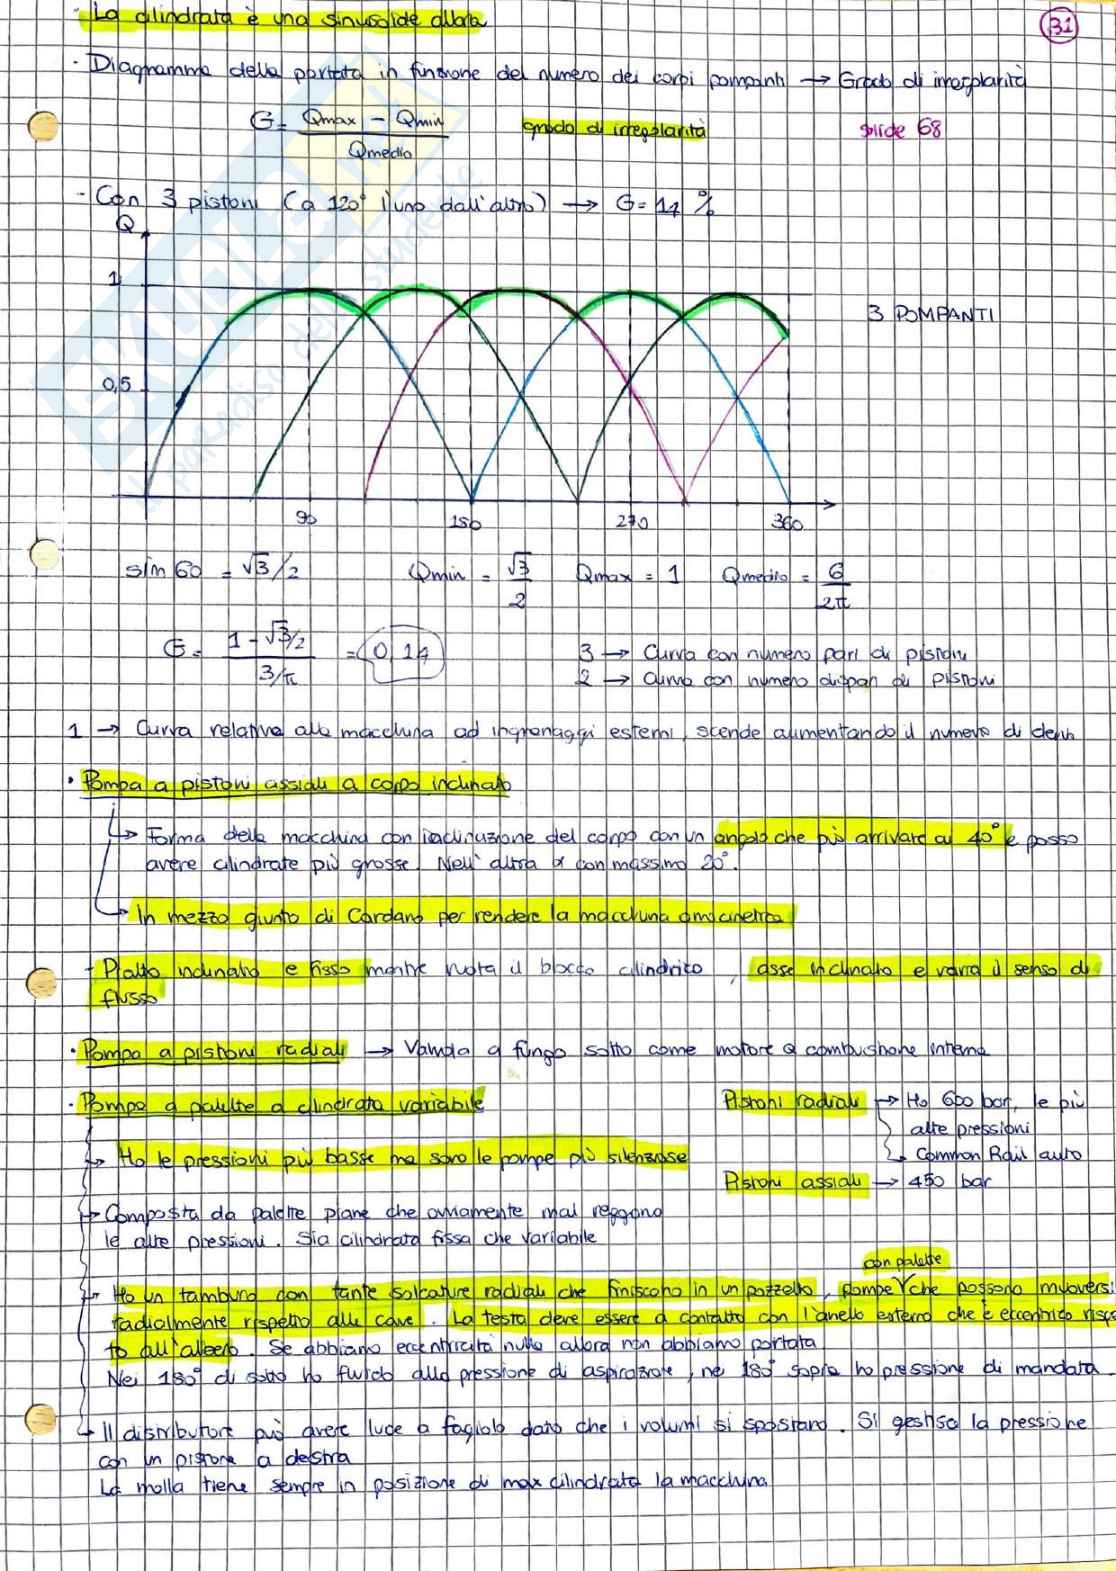 - La cilindrata è una sinusoide allora
31
- Diagramma della portata in funzione del numero dei corpi pompanti → Grado di irregolarità
G = (Qmax - Qmin) / Qmedia
grado di irregolarità
slide 68
- Con 3 pistoni (a 120° l'uno dall'altro) → G = 14 %
Q
1
3 POMPANTI
0,5
90 180 270 360
sin 60 = √3/2
Qmin = √3/2 Qmax = 1 Qmedia = 6/2π
G = (1 - √3/2) / (3/π) = 0,14
3 → Curva con numero pari di pistoni
2 → Curva con numero dispari di pistoni
1 → Curva relativa alla macchina ad ingranaggi esterni, scende aumentando il numero di denti
• Pompa a pistoni assiali a corpo inclinato
↳ Forma della macchina con inclinazione del corpo con un angolo che può arrivare ai 40° e posso
avere cilindrate più grosse. Nell'altra α con massimo 20°.
↳ In mezzo giunto di Cardano per rendere la macchina omocinetica
- Piatto inclinato e fisso mentre ruota il blocco cilindrico, asse inclinato e varia il senso di
flusso
• Pompa a pistoni radiali → Valvola a fungo sotto come motore a combustione interna
• Pompe a palette a cilindrata variabile
Pistoni radiali → Ho 600 bar, le più
alte pressioni
↳ Common Rail auto
↳ Ho le pressioni più basse ma sono le pompe più silenziose
Pistoni assiali → 450 bar
↳ Composta da palette piane che ovviamente mal reggono
le alte pressioni. Sia cilindrata fissa che variabile
con palette
↳ Ho un tamburo con tante scalcature radiali che finiscono in un pozzetto, pompe che possono muoversi
radialmente rispetto alle cave. La testa deve essere a contatto con l'anello esterno che è eccentrico rispet
to all'albero. Se abbiamo eccentricità nulla allora non abbiamo portata
Nei 180° di sotto ho fluido alla pressione di aspirazione, nei 180° sopra ho pressione di mandata.
↳ Il distributore può avere luce a fagiolo dato che i volumi si spostano. Si gestisce la pressione
con un pistone a destra
La molla tiene sempre in posizione di max cilindrata la macchina
SKUOLA.net
il paradiso dello studente